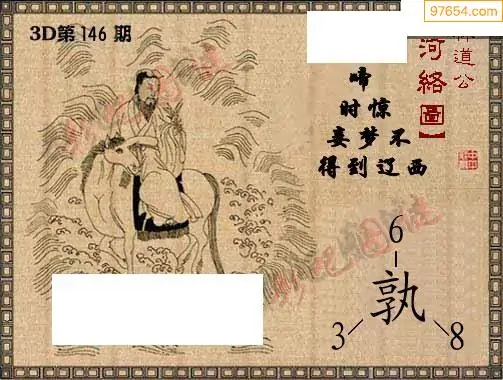 97654.com
3D第 146 期
道公
河絡圖】
啼
时惊
妾梦不
得到辽西
6
孰
3
8